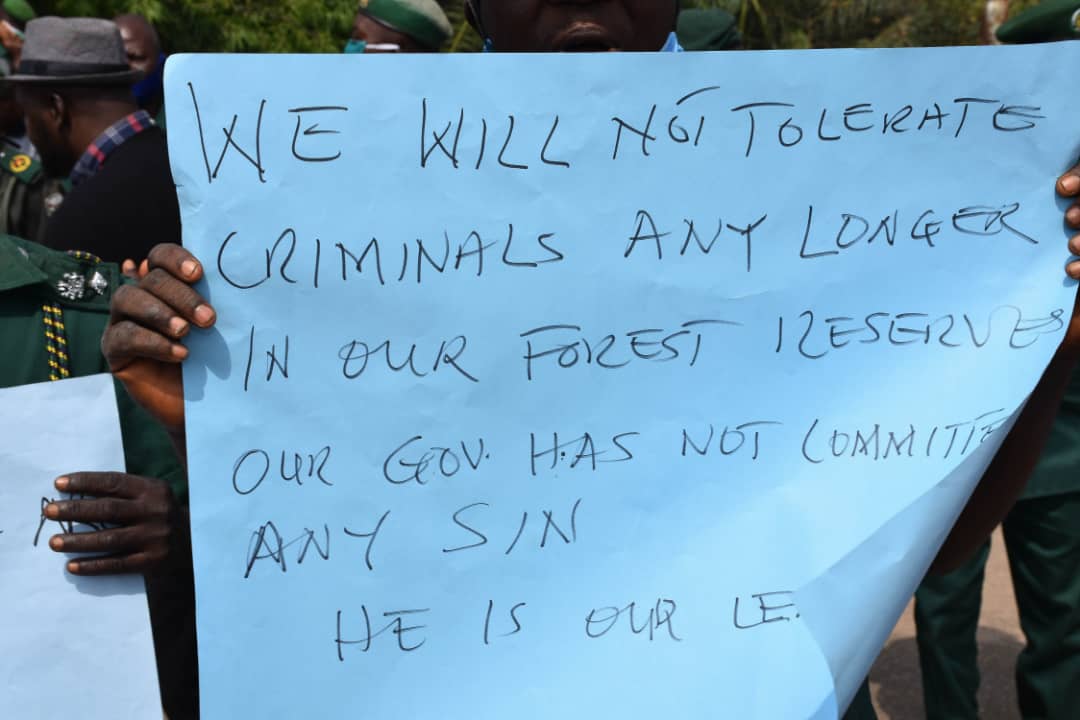 WE WILL NOT TOLERATE
CRIMINALS ANY LONGER
IN OUR FOREST RESERVES
OUR GOV. HAS NOT
ANY SIN
HE IS OUR